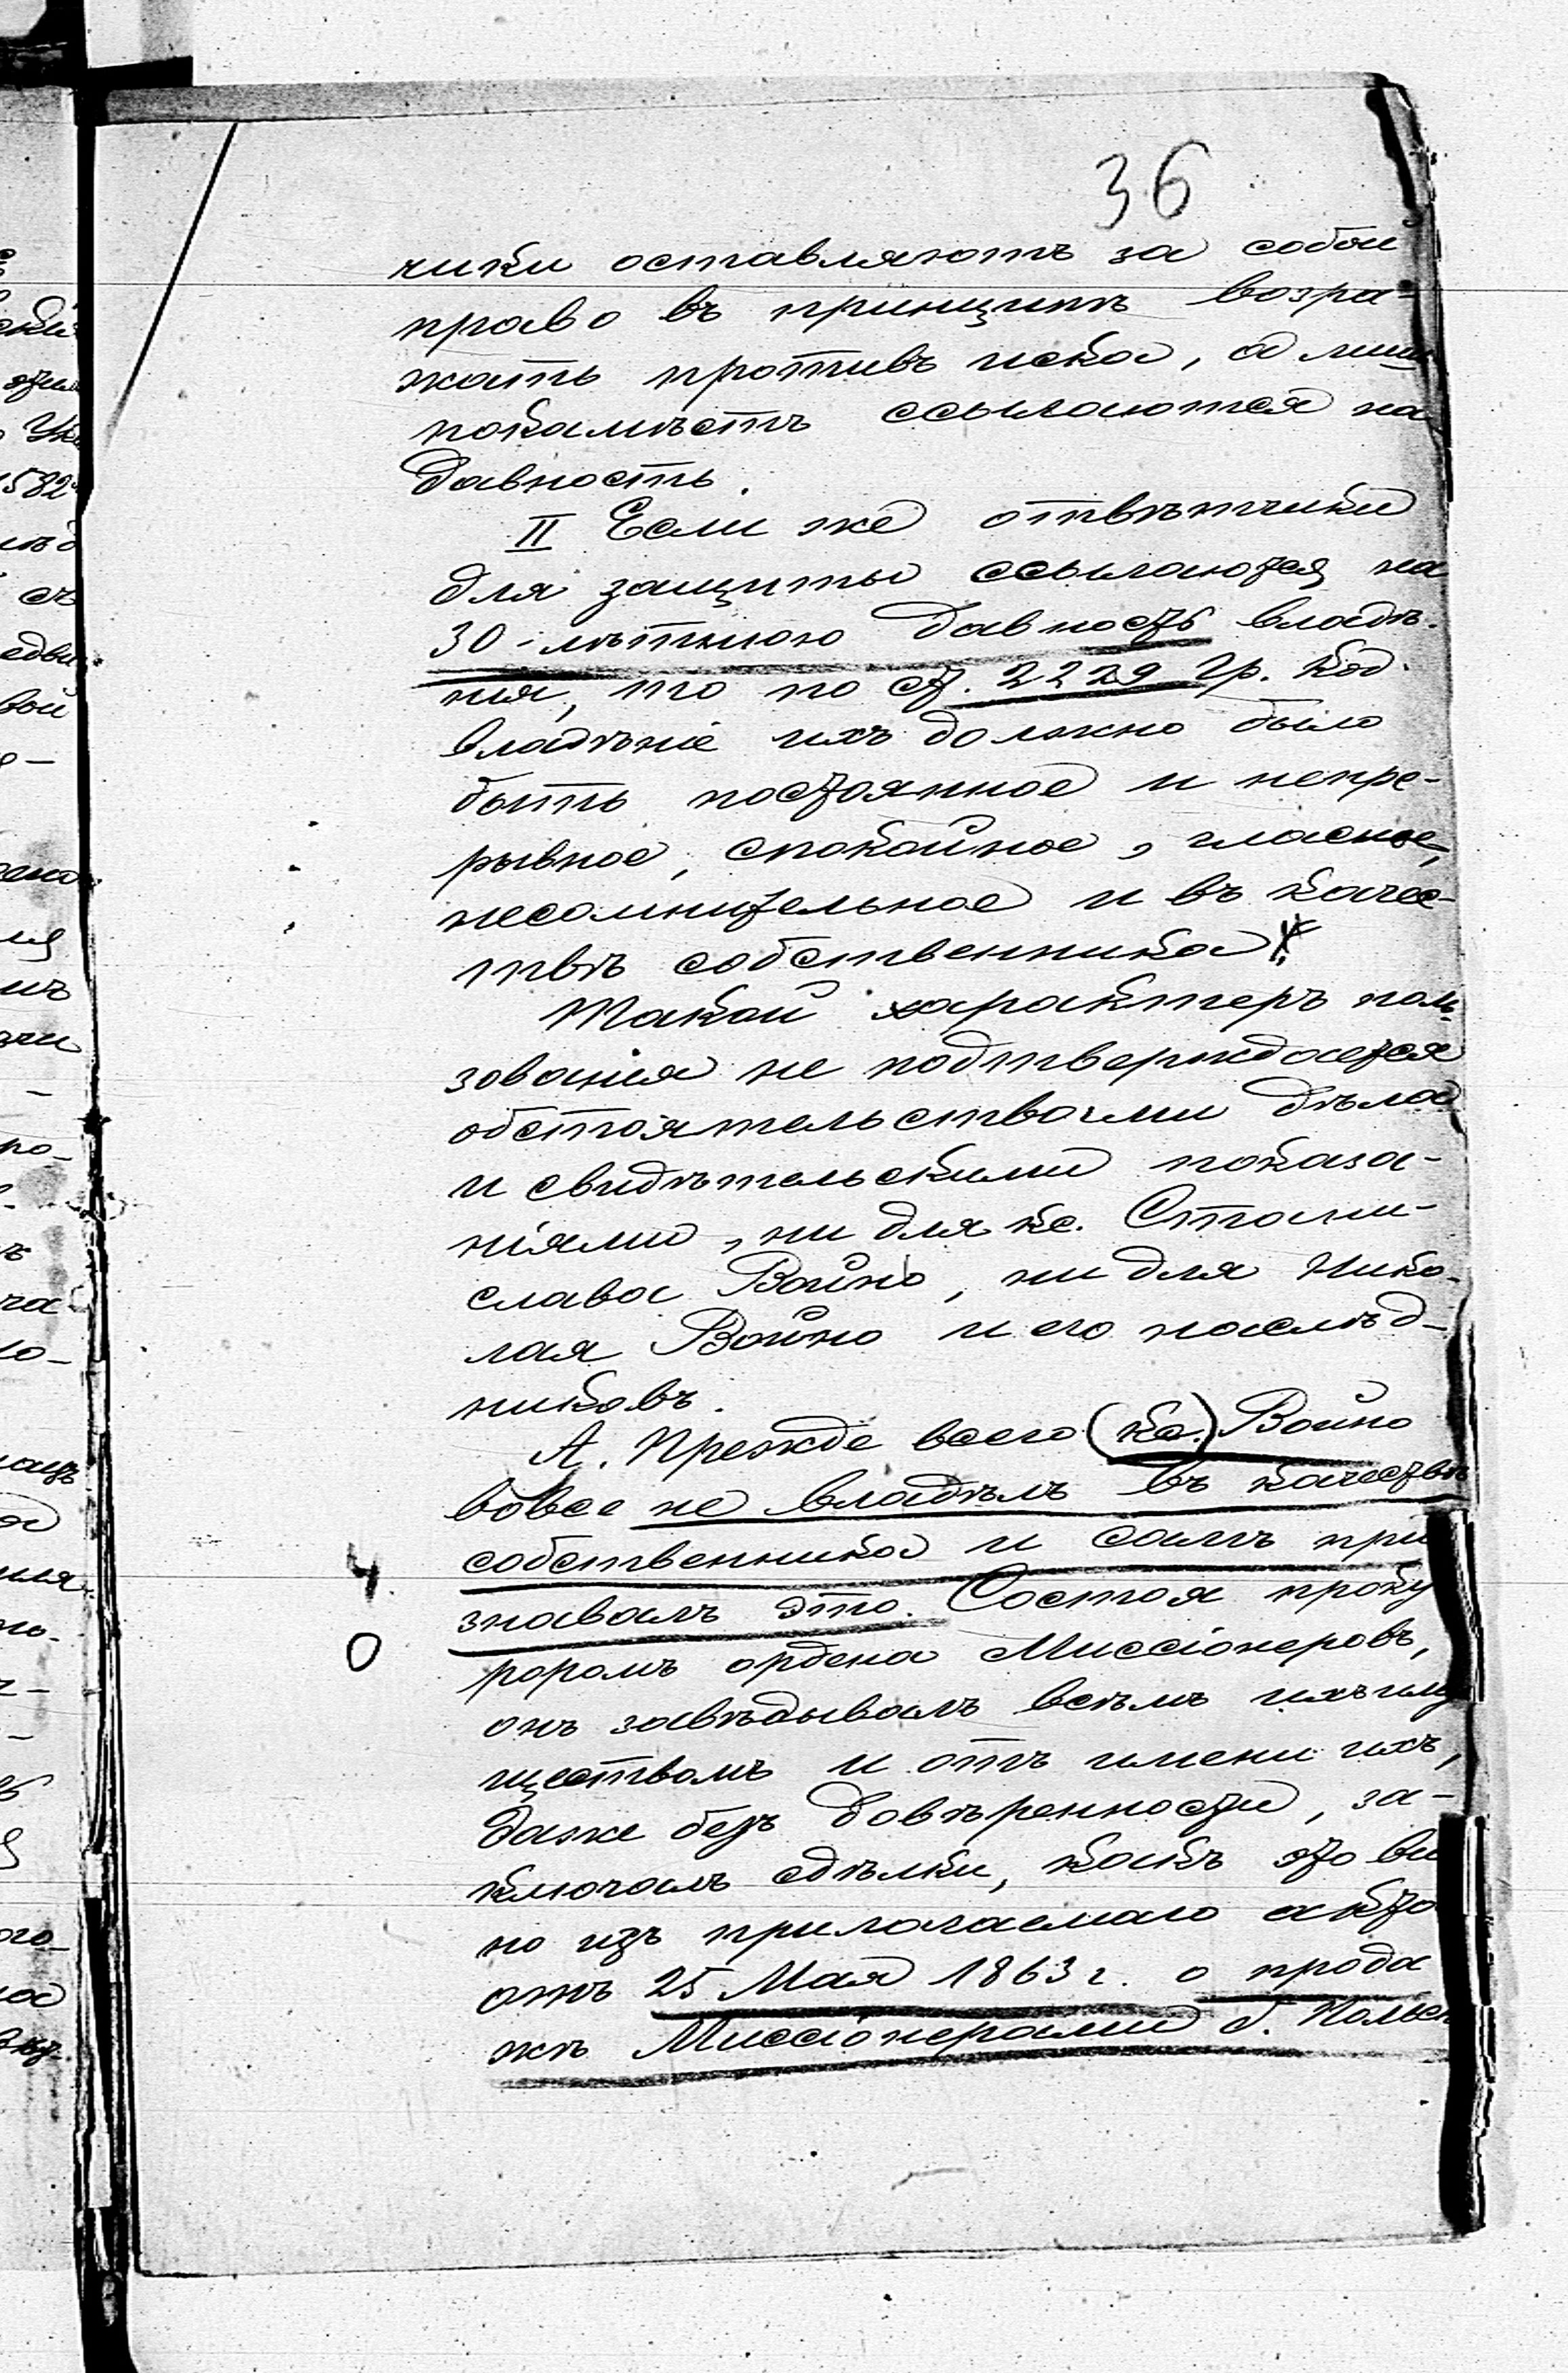 36
чики оставляютъ за собой
право въ принципѣ возра-
жать противъ иска, а лишь
покамѣстъ ссылаются на
давность.
II Если же отвѣтчики
для защиты ссылаются на
30-лѣтнюю давность владѣ-
нія, то по ст. 2229 Гр. Код.
владѣніе ихъ должно было
быть постоянное и непре-
рывное, спокойное, гласное,
несомнительное и въ качес-
твѣ собственника
Такой характеръ поль-
зованія не подтверждается
обстоятельствами дѣла
и свидѣтельскими показа-
ніями, ни для кс. Стани-
слава Войно, ни для Нико-
лая Войно и его наслѣд-
никовъ.
А. Прежде всего (кс.) Войно
вовсе не владѣлъ въ качествѣ
собственника и самъ при
знавалъ это. Состоя проку
роромъ ордена Миссіонеровъ,
онъ завѣдывалъ всѣмъ ихъ иму
ществомъ и отъ имени ихъ,
даже безъ довѣренности, за-
ключалъ сдѣлки, какъ это ви
но изъ прилагаемаго акта
отъ 25 Мая 1863 г. о прода
жѣ Миссіонерами